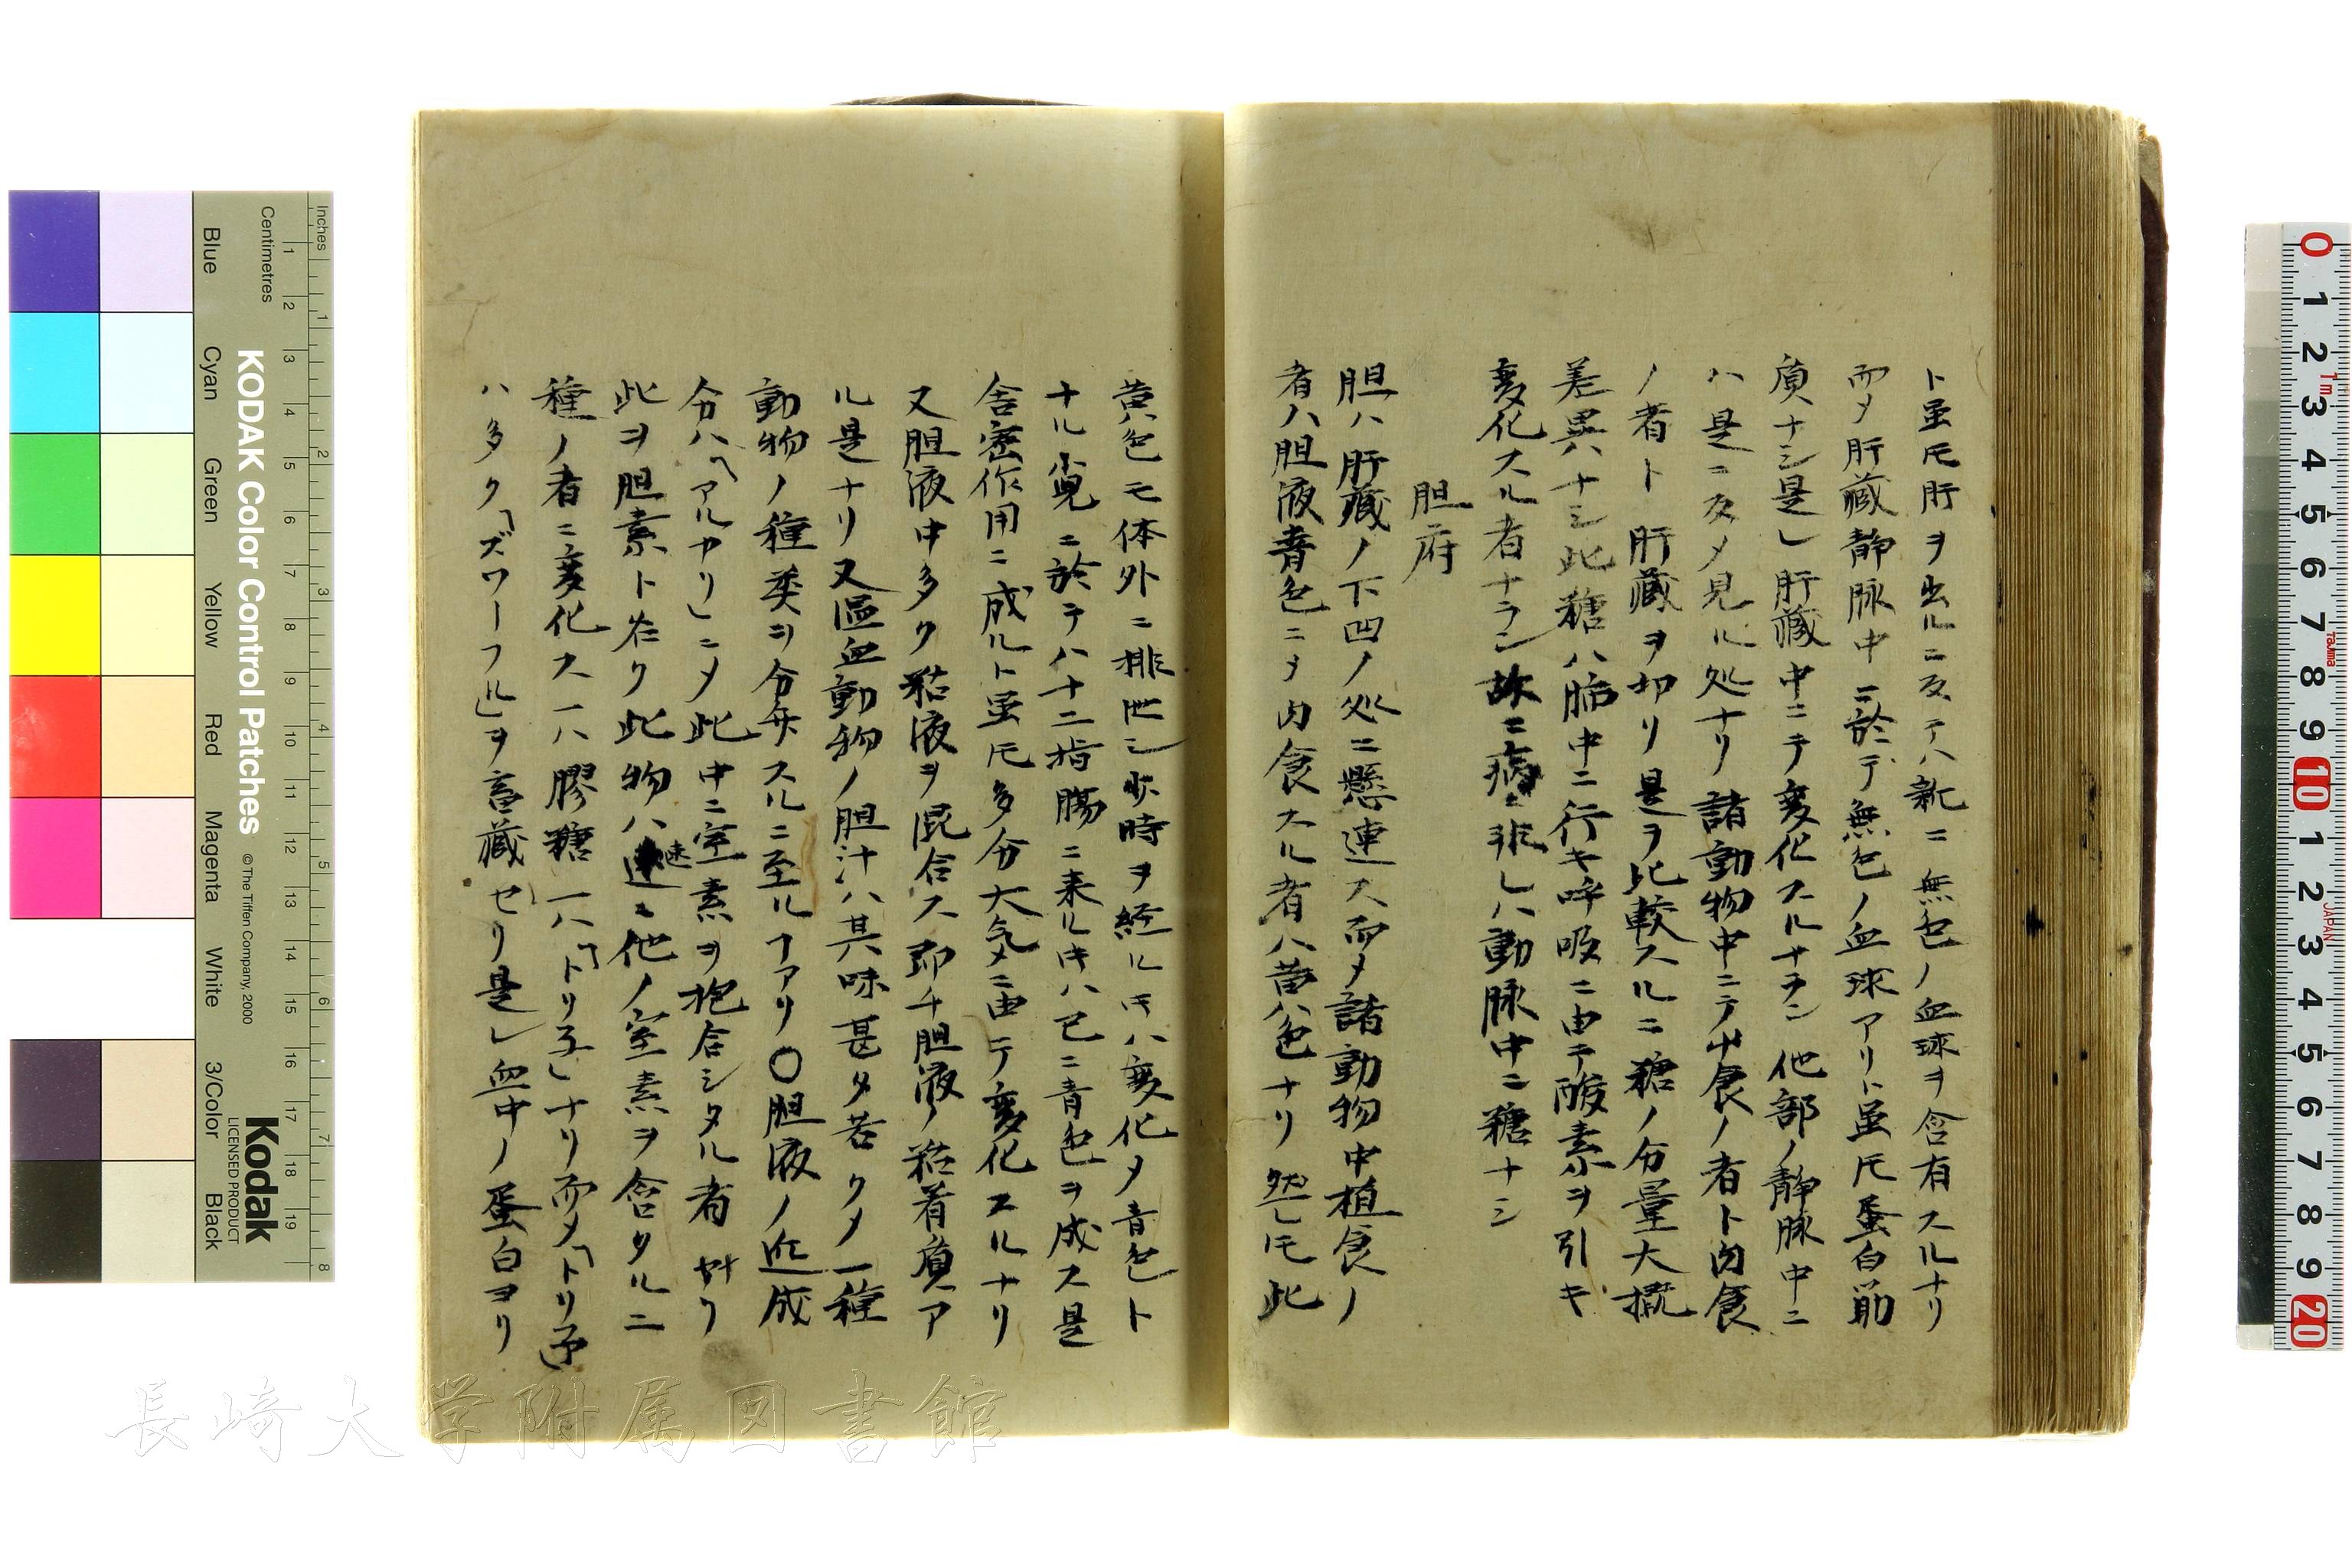 ト虽𪜈肝ヲ出ルニ及テハ新ニ無色ノ血球ヲ含有スルナリ
而メ肝蔵静脉中ニ於テ無色ノ血球アリト虽𪜈蛋白筋
質ナシ是レ肝蔵中ニテ変化スルナラン他部ノ静脉中ニ
ハ是ニ反メ見ル処ナリ諸動物中ニテ艸食ノ者ト肉食
ノ者ト肝蔵ヲ切リ是ヲ比較スルニ糖ノ分量大概
差異ナシ此糖ハ肺中ニ行キ呼吸ニ由テ酸素ヲ引キ
変化スル者ナラン故ニ病ニ非レハ動脉中ニ糖ナシ
胆府
胆ハ肝蔵ノ下凹ノ処ニ懸連ス而メ諸動物中植食ノ
者ハ胆液青色ニメ肉食スル者ハ黄色ナリ然レ𪜈此
黄色モ体外ニ排泄シ少時ヲ経ル𪜈ハ変化メ青色ト
ナル小児ニ於テハ十二指腸ニ来ル𪜈ハ已ニ青色ヲ成ス是
舎密作用ニ成ルト虽𪜈多分大気ニ由テ変化スルナリ
又胆液中多ク粘液ヲ混合ス即チ胆液ノ粘着質ア
ル是ナリ又温血動物ノ胆汁ハ其味甚タ苦クメ一種
動物ノ種類ヲ分弁スルニ至ルヿアリ〇胆液ノ近成
分ハ「アルカリ」ニメ此中ニ窒素ヲ抱合シタル者
此ヲ胆素ト名ク此物ハ速ニ他ノ窒素ヲ含タル二
種ノ者ニ変化ス一ハ膠糖一ハ「トリ子」ナリ而メ「トリ子」
ハ多ク「ズワーフル」ヲ畜蔵セリ是レ血中ノ蛋白ヨリ
KODAK Color Control Patches
© The Tiffen Company, 2000
Kodak
LICENSED PRODUCT
Inches
Centimetres
Blue
Cyan
Green
Yellow
Red
Magenta
White
3/Color
Black
長崎大学附属図書館